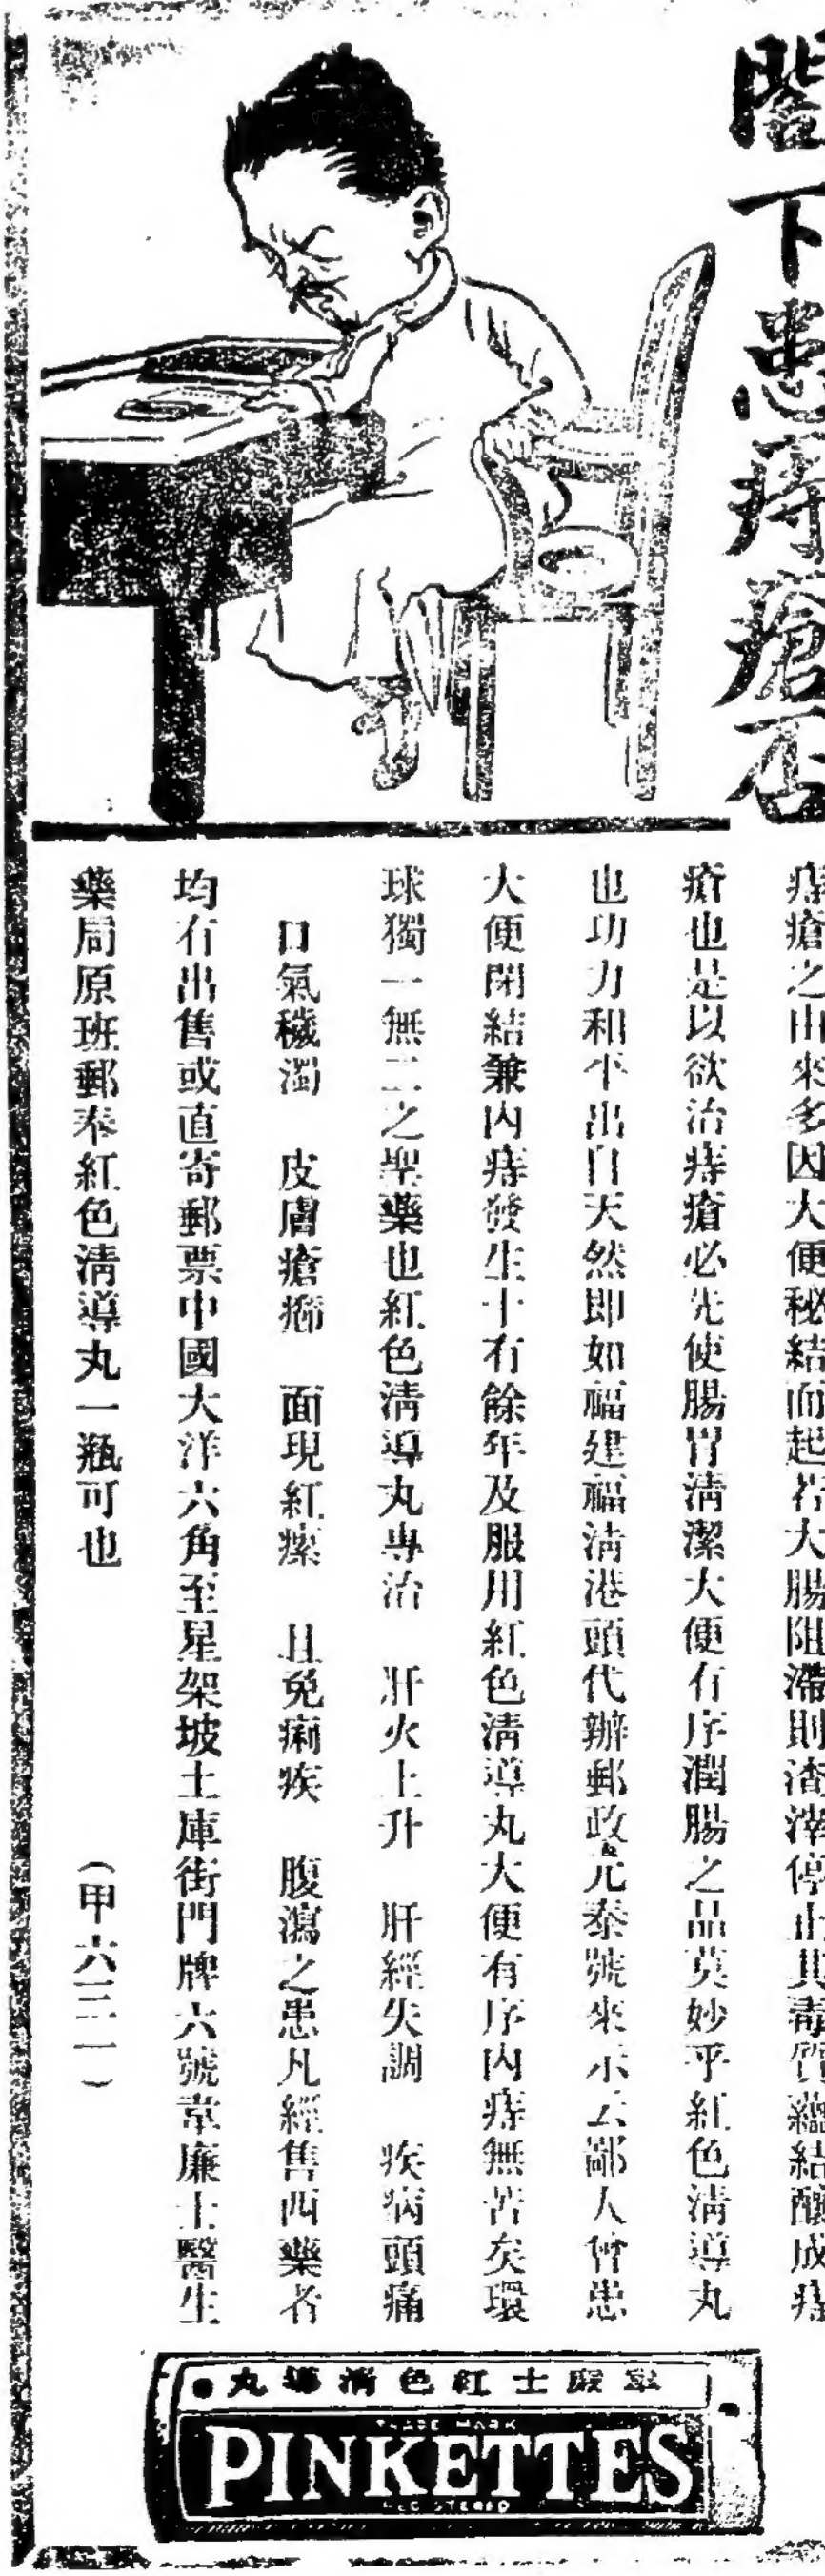 閣下患痔瘡否
痔瘡之由來多因大便秘結而起若大腸阻滯則渣滓停止其毒質蘊結釀成痔
瘡也是以欲治痔瘡必先使腸胃清潔大便有序潤腸之品莫妙乎紅色清導丸
也功力和平出自天然即如福建福清港頭代辦郵政元泰號來示云鄙人曾患
大便閉結兼內痔發生十有餘年及服用紅色清導丸大便有序內痔無苦矣環
球獨一無二之聖藥也紅色清導丸專治 肝火上升 肝經失調 疾病頭痛
口氣穢濁 皮膚瘡癤 面現紅瘰 且免痢疾 腹瀉之患凡經售西藥者
均有出售或直寄郵票中國大洋六角至星架坡土庫街門牌六號韋廉士醫生
藥局原班郵奉紅色清導丸一瓶可也 (甲六三一)
丸導清色紅士廉韋
TRADE MARK
PINKETTES
REGISTERED